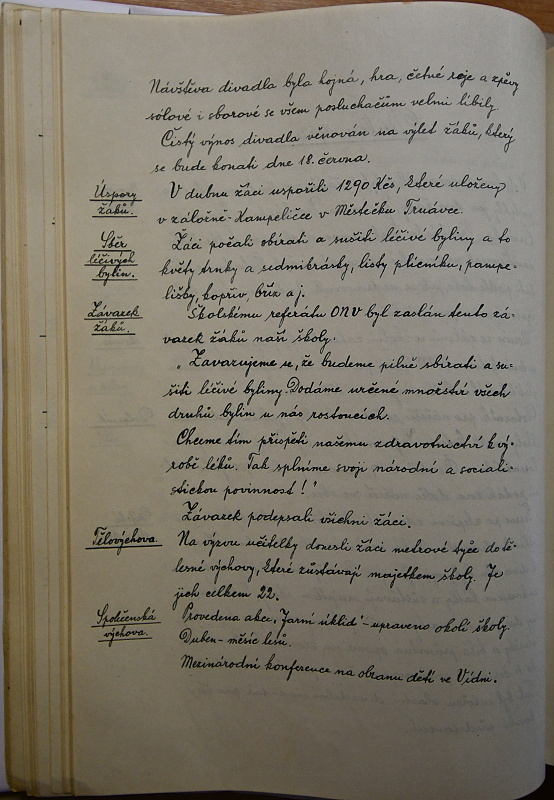 Návštěva divadla byla hojná, hra, četné reje a zpěvy
sólové i sborové se všem posluchačům velmi líbily.
Čistý výnos divadla věnován na výlet žáků, který
se bude konati dne 18. června.
Úspory
žáků.
V dubnu žáci uspořili 1290 Kčs, které uloženy
v záložně-Kampeličce v Městečku Trnávce.
Sběr
léčivých
bylin.
Žáci počali sbírati a sušiti léčivé byliny a to
květy trnky a sedmikrásky, listy plicníku, pampe-
lišky, kopřiv, bříz a j.
Závazek
žáků.
Školskému referátu ONV byl zaslán tento zá-
vazek žáků naší školy.
„Zavazujeme se, že budeme pilně sbírati a su-
šiti léčivé byliny. Dodáme určené množství všech
druhů bylin u nás rostoucích.
Chceme tím přispěti našemu zdravotnictví k vý-
robě léků. Tak splníme svoji národní a sociali-
stickou povinnost!"
Závazek podepsali všichni žáci.
Tělovýchova.
Na výzvu učitelky donesli žáci metrové tyče do tě-
lesné výchovy, které zůstávají majetkem školy. Je
jich celkem 22.
Společenská
výchova.
Provedena akce „Jarní úklid" - upraveno okolí školy.
Duben - měsíc lesů.
Mezinárodní konference na obranu dětí ve Vídni.